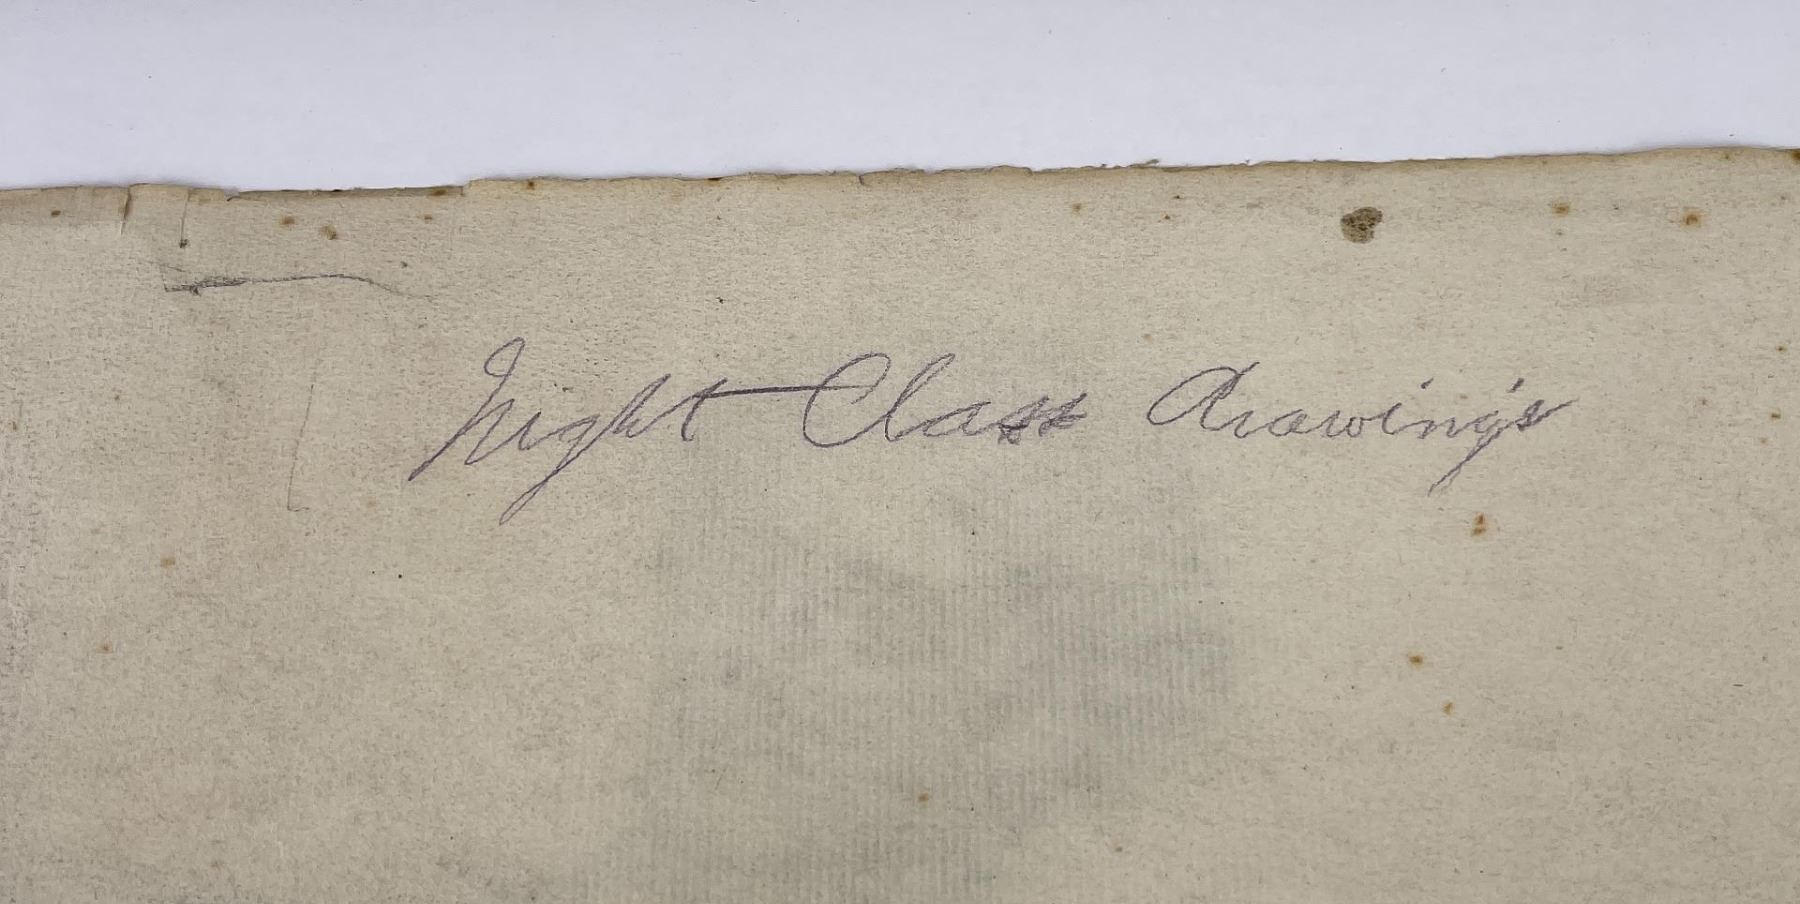 Night Class Drawings